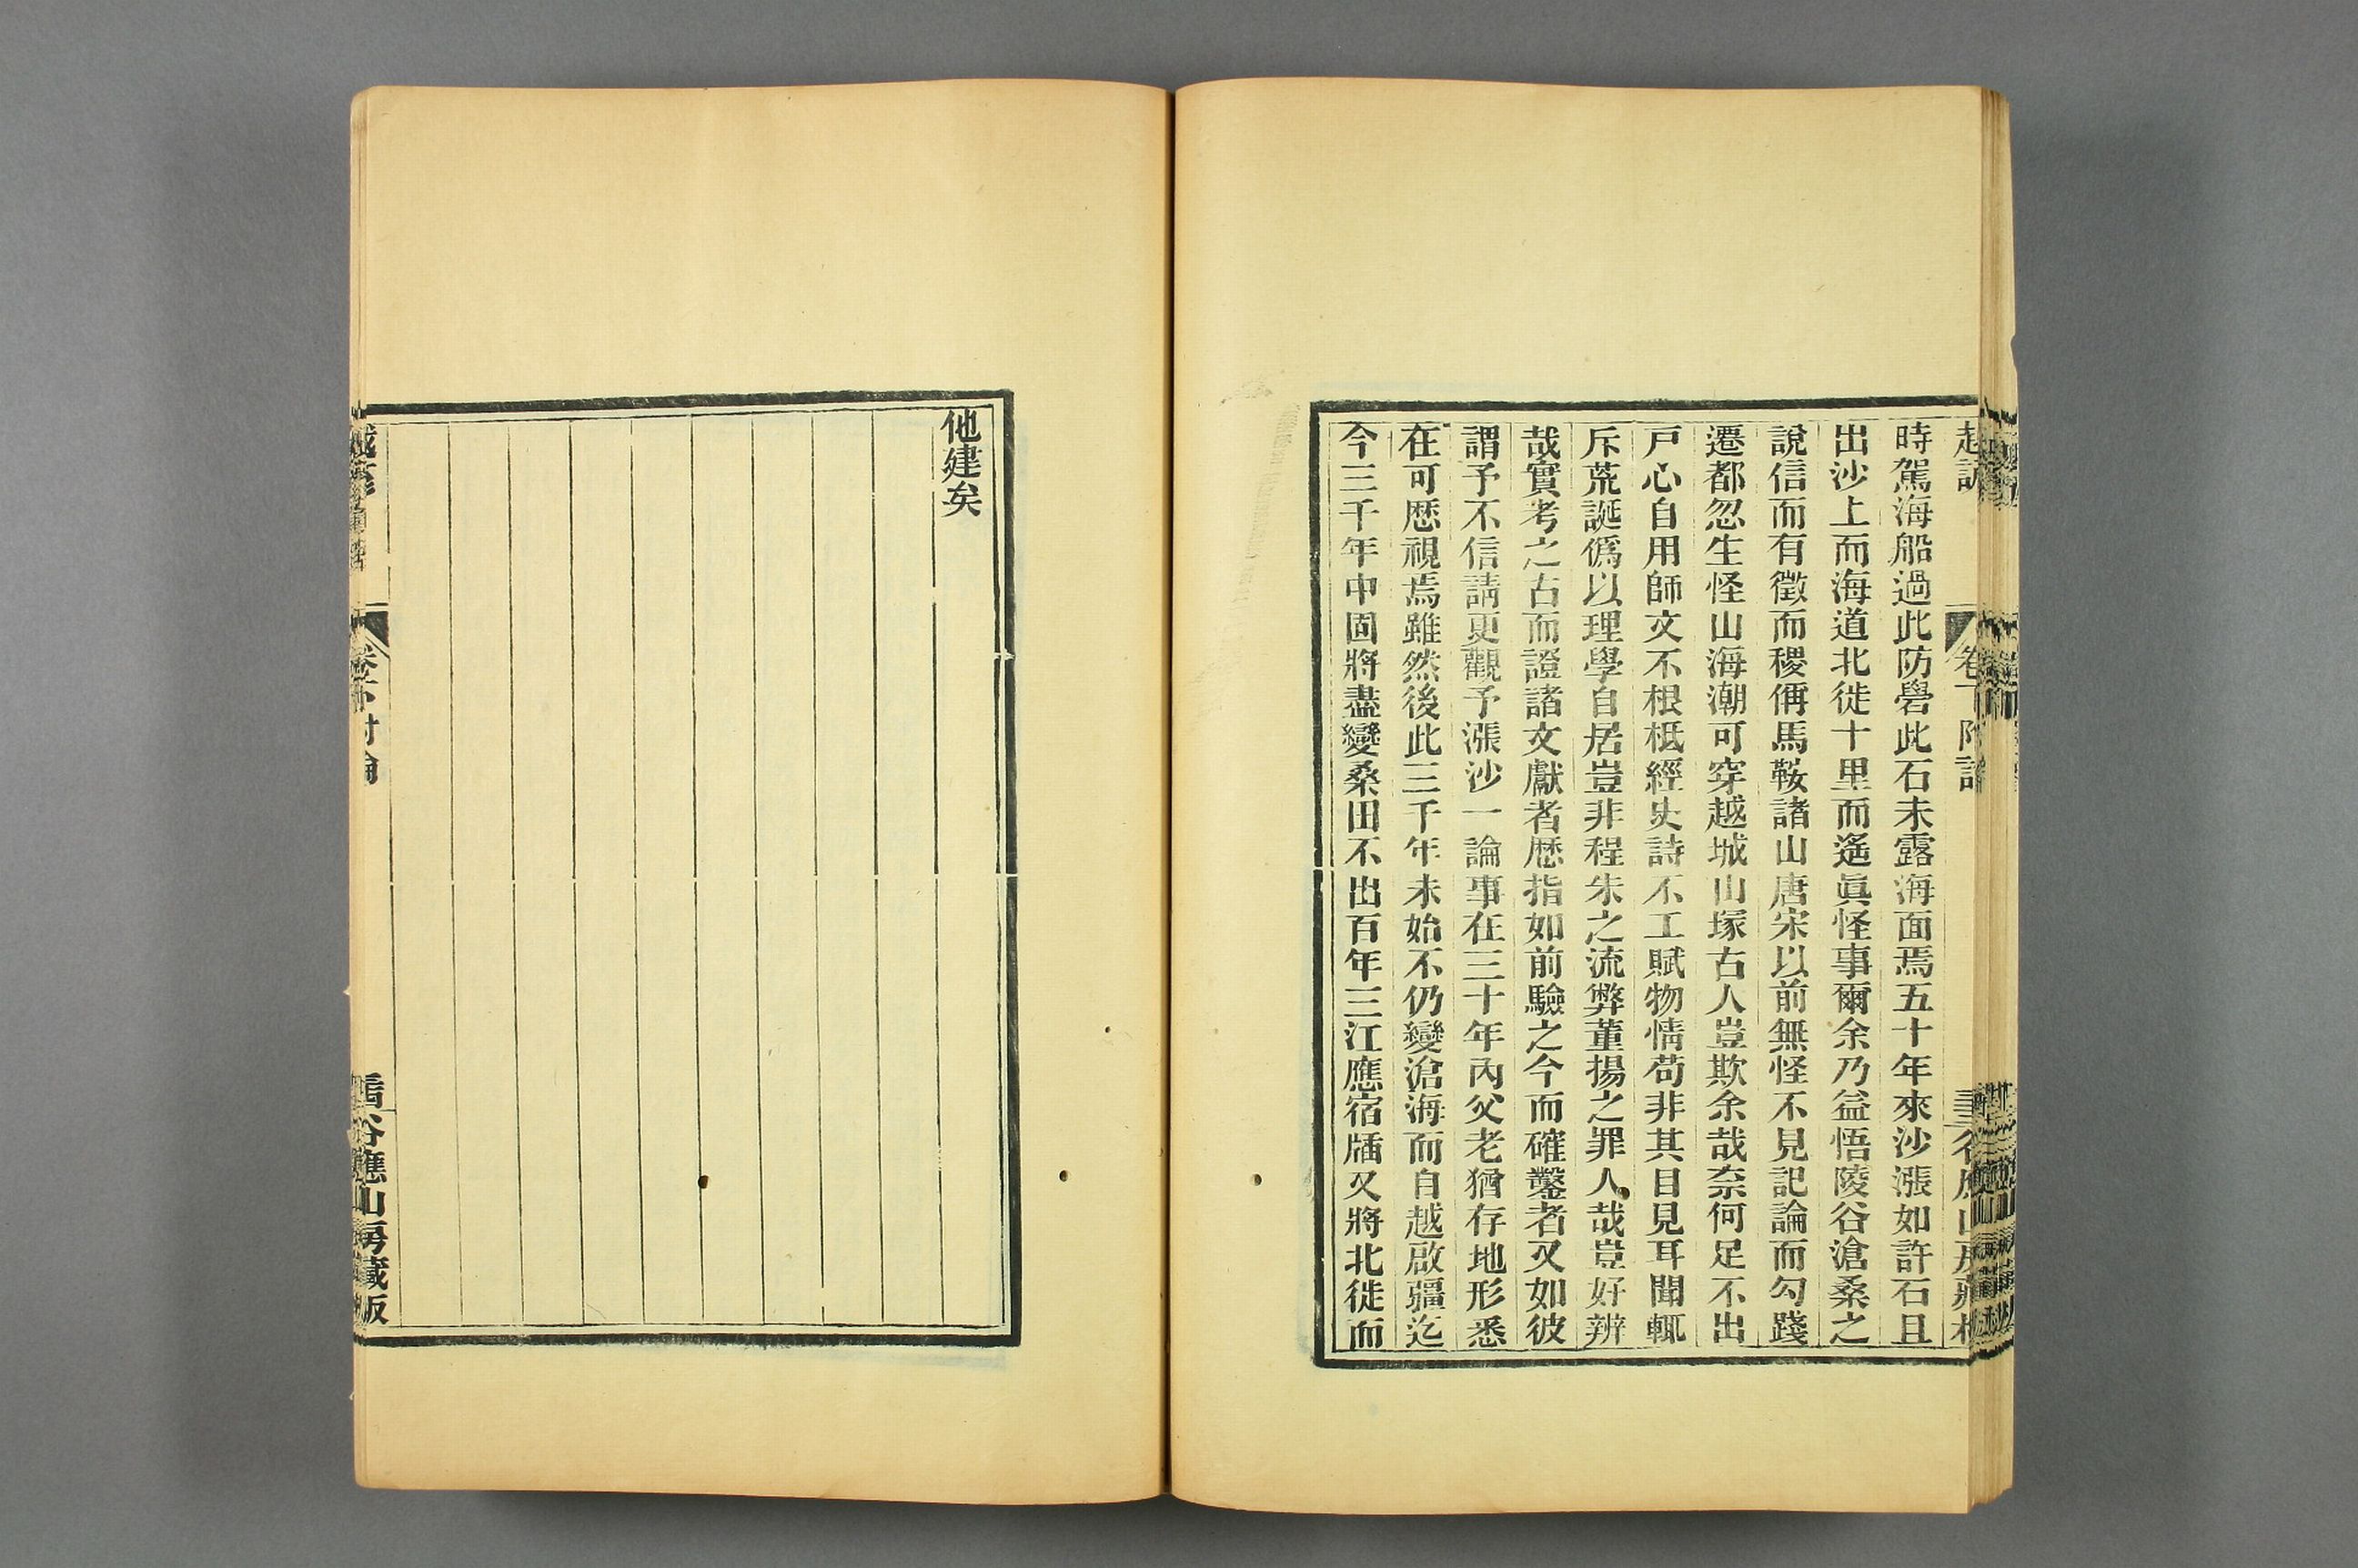 時駕海船過此防礐此石未露海面焉五十年來沙漲如許石且
出沙上而海道北徙十里而遙眞怪事爾余乃益悟陵谷滄桑之
說信而有徵而稷偁馬鞍諸山唐宋以前無怪不見記論而勾踐
遷都忽生怪山海潮可穿越城山塚古人豈欺余哉奈何足不出
戸心自用師文不根柢經史詩不工賦物情苟非其目見耳聞輒
斥荒誕僞以理學自居豈非程朱之流弊董揚之罪人哉豈好辨
哉實考之古而證諸文獻者歴指如前驗之今而確鑿者又如彼
謂予不信請更觀予漲沙一論事在三十年內父老猶存地形悉
在可歴視焉雖然後此三千年未始不仍變滄海而自越啟疆迄
今三千年中固將盡變桑田不出百年三江應宿牐又將北徙而
他建矣
卷下附論
谷應山房藏版